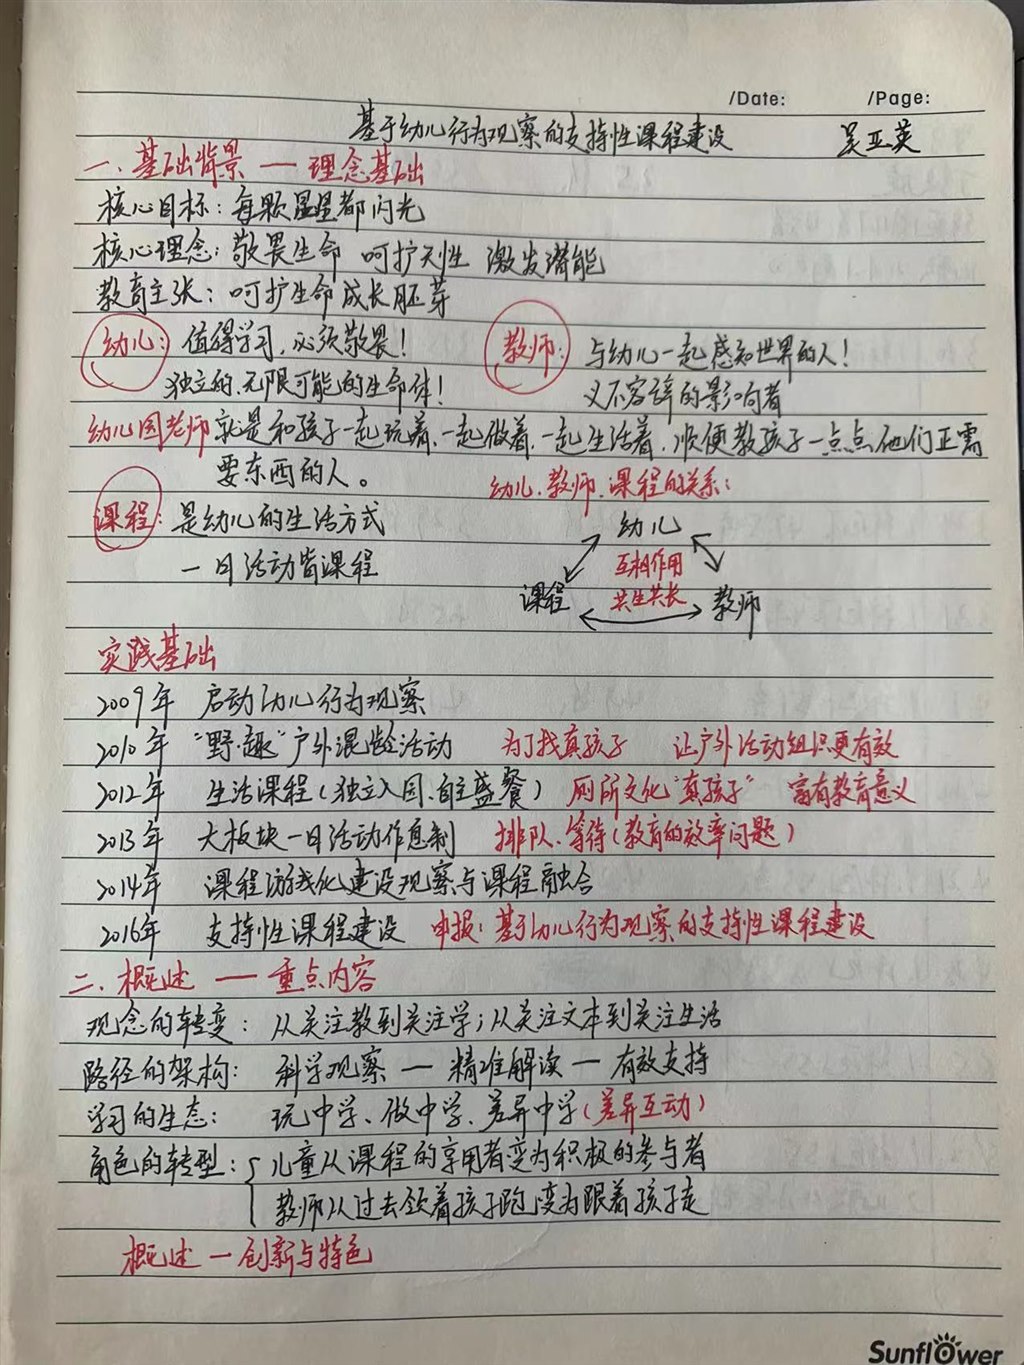 /Date: /Page:
基于幼儿行为观察的支持性课程建设 吴亚英
一、基础背景 — 理念基础
核心目标：每颗星星都闪光
核心理念：敬畏生命 呵护天性 激发潜能
教育主张：呵护生命成长胚芽
幼儿：值得学习，必须敬畏！ 教师：与幼儿一起感知世界的人！
独立的、无限可能的生命体！ 义不容辞的影响者
幼儿园老师就是和孩子一起玩着、一起做着、一起生活着，顺便教孩子一点点他们正需
要东西的人。 幼儿、教师、课程的关系：
课程：是幼儿的生活方式 幼儿
一日活动皆课程 互相作用
课程 共生共长 教师
实践基础
2009年 启动幼儿行为观察
2010年 “野·趣”户外混龄活动 为了找真孩子 让户外活动组织更有效
2012年 生活课程（独立入园、自主盛餐） 厕所文化“真孩子” 富有教育意义
2013年 大板块一日活动作息制 排队、等待（教育的效率问题）
2014年 课程游戏化建设观察与课程融合
2016年 支持性课程建设 申报：基于幼儿行为观察的支持性课程建设
二、概述 — 重点内容
观念的转变：从关注教到关注学；从关注文本到关注生活
路径的架构：科学观察 — 精准解读 — 有效支持
学习的生态：玩中学、做中学、差异中学（差异互动）
角色的转型：{ 儿童从课程的享用者变为积极的参与者
教师从过去领着孩子跑变为跟着孩子走
概述 — 创新与特色
Sunflower